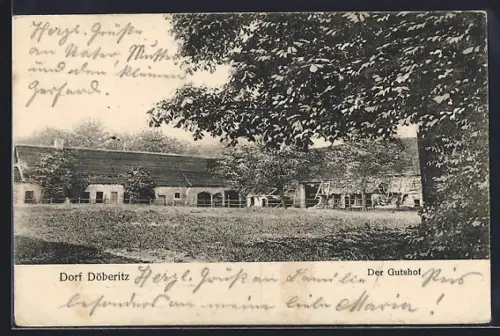 Herzl. Grüße
an Vater, Mutter
und den kleinen
Gerhard.
Dorf Döberitz
Der Gutshof
Herzl. Gruß an Familie
besonders an meine liebe Maria!